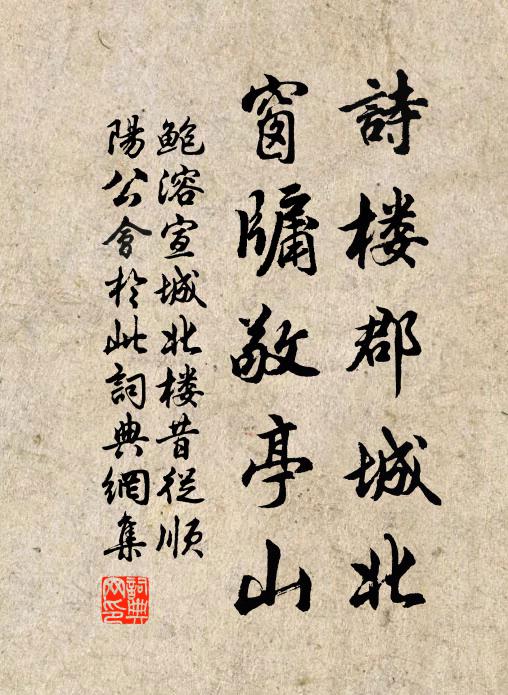 詩楼郡城北
窗牖敬亭山
鲍溶宣城北楼昔從順
陽公會於此詞典網集
詞典网印